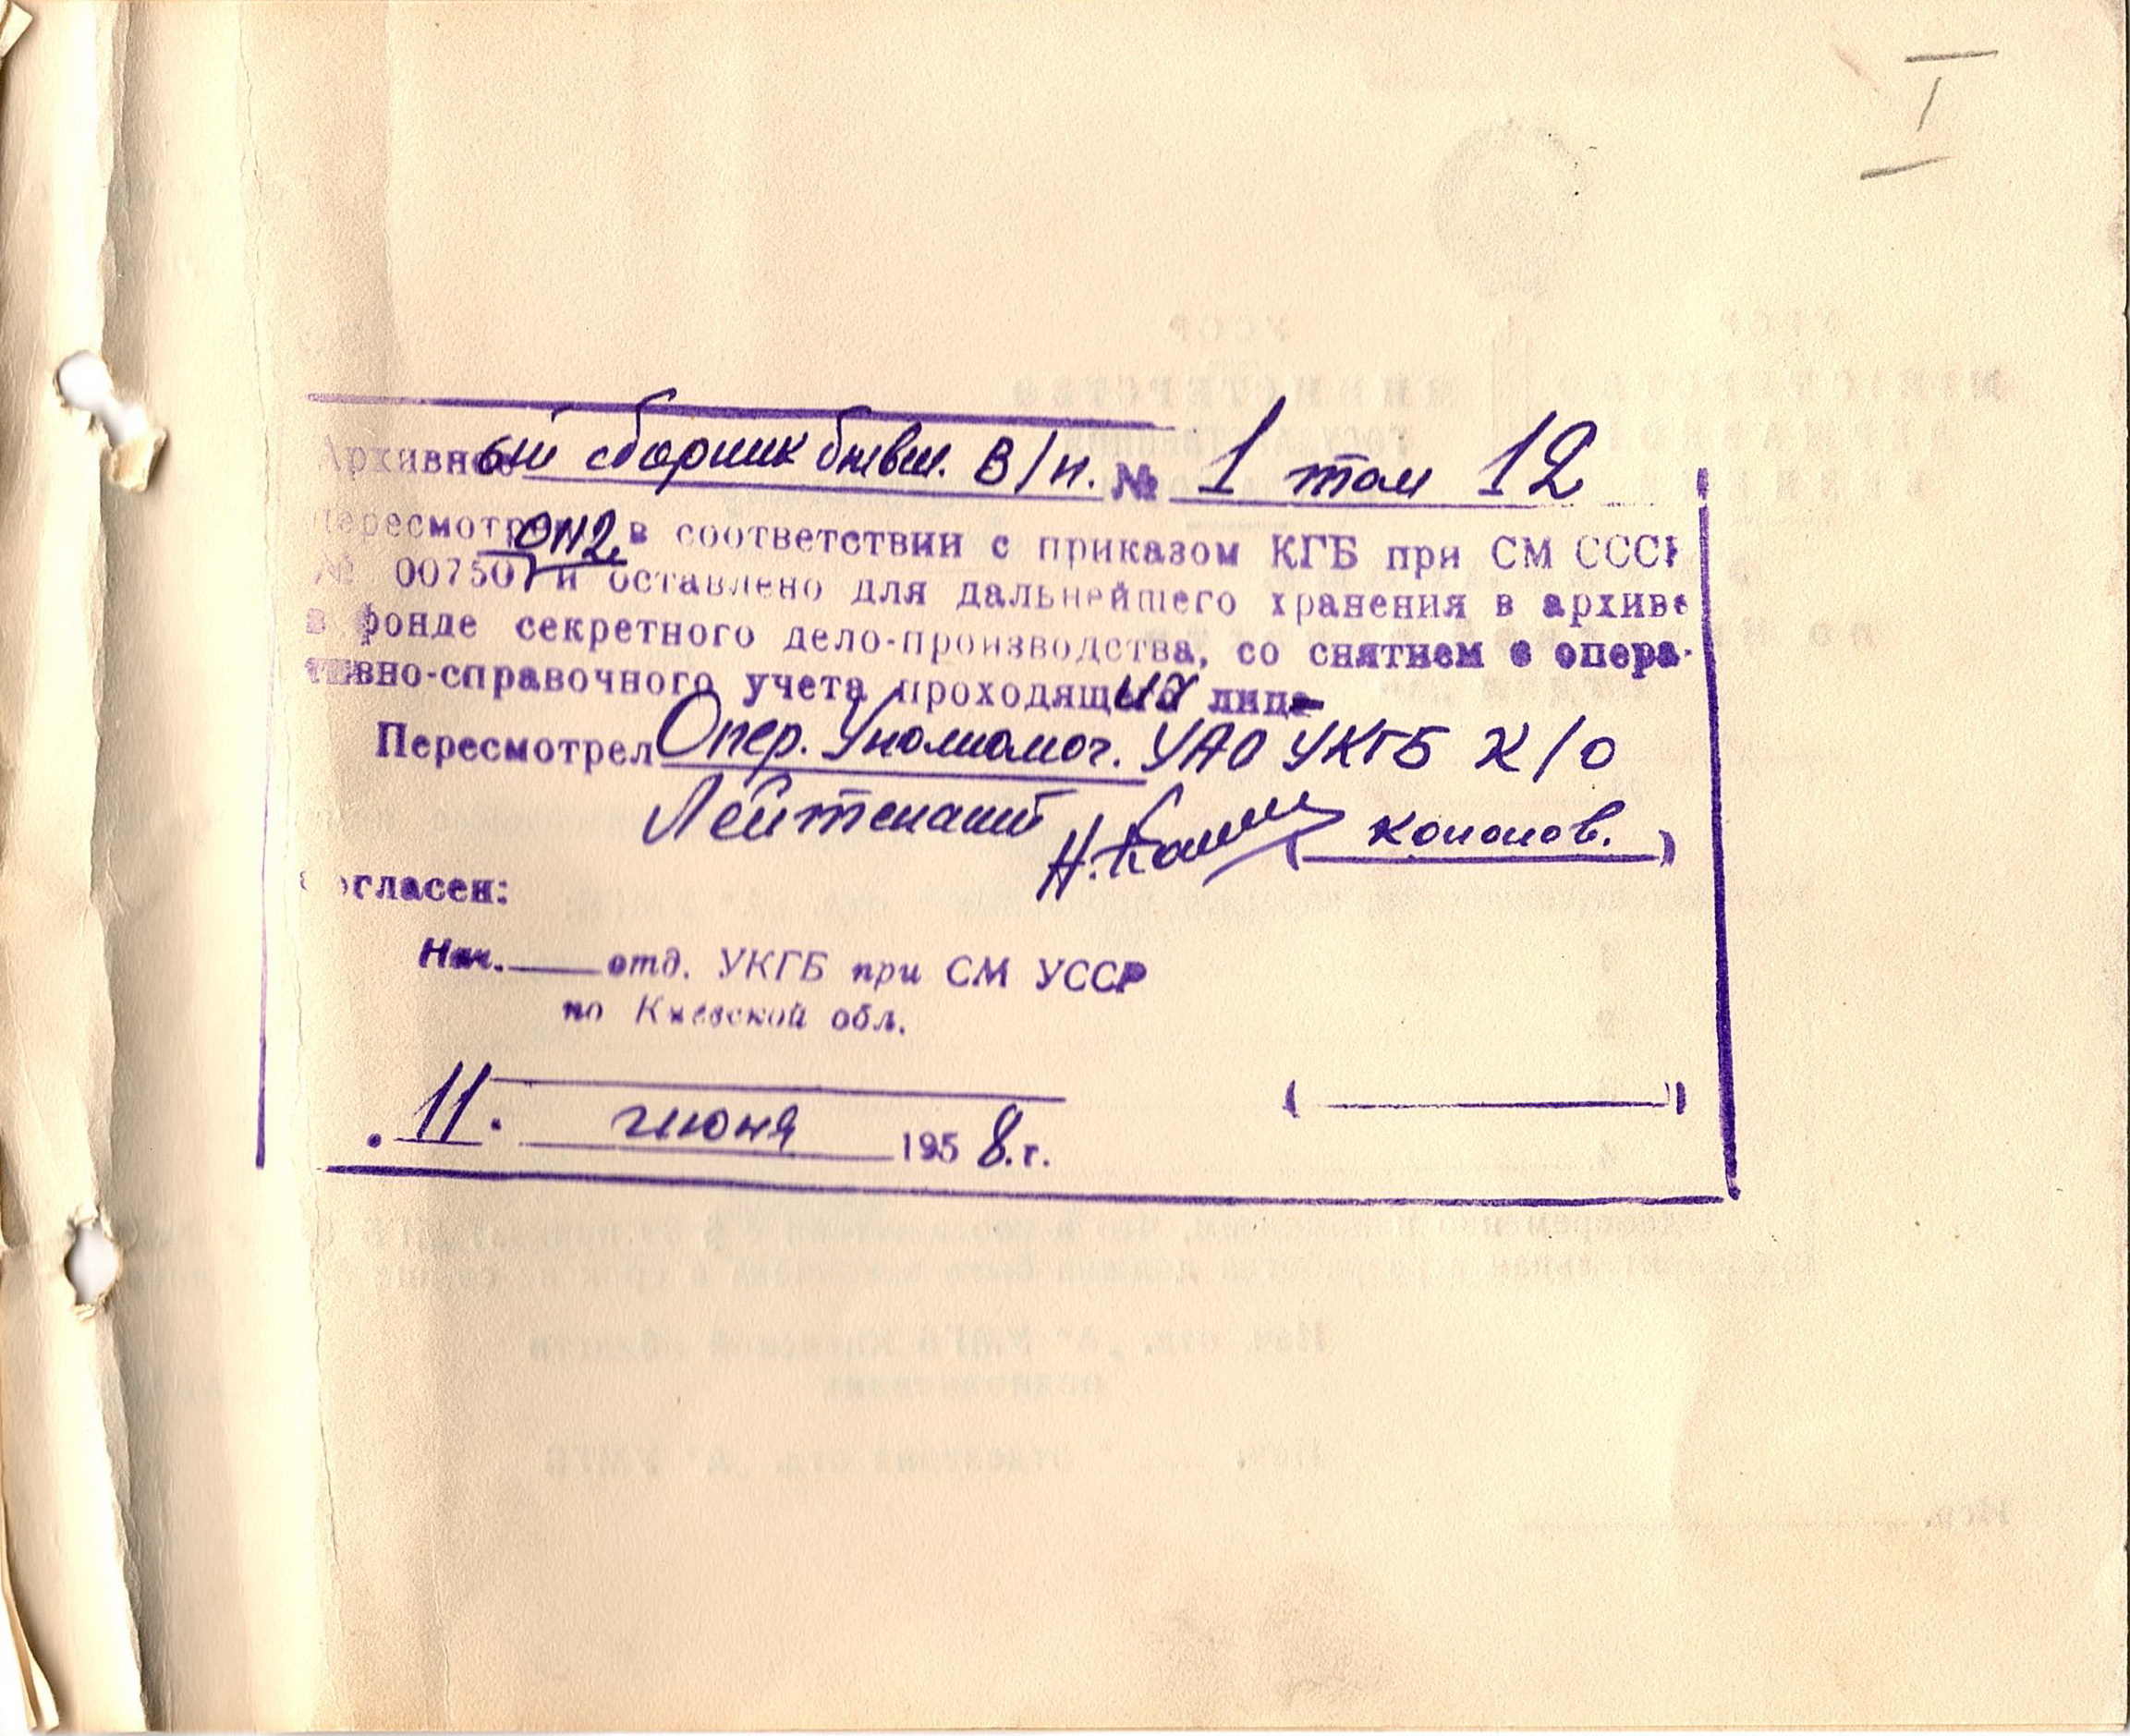 I
Архивный сборник бывш. В/п. № 1 том 12
пересмотрен в соответствии с приказом КГБ при СМ СССР
№ 00750 и оставлено для дальнейшего хранения в архиве
в фонде секретного дело-производства, со снятием с опера-
тивно-справочного учета проходящих лиц
Пересмотрел Опер. Уполномоч. УАО УКГБ К/О
Лейтенант (Кононов.)
Согласен:
Нач. ____ отд. УКГБ при СМ УССР
по Киевской обл.
( )
"11" июня 1958 г.